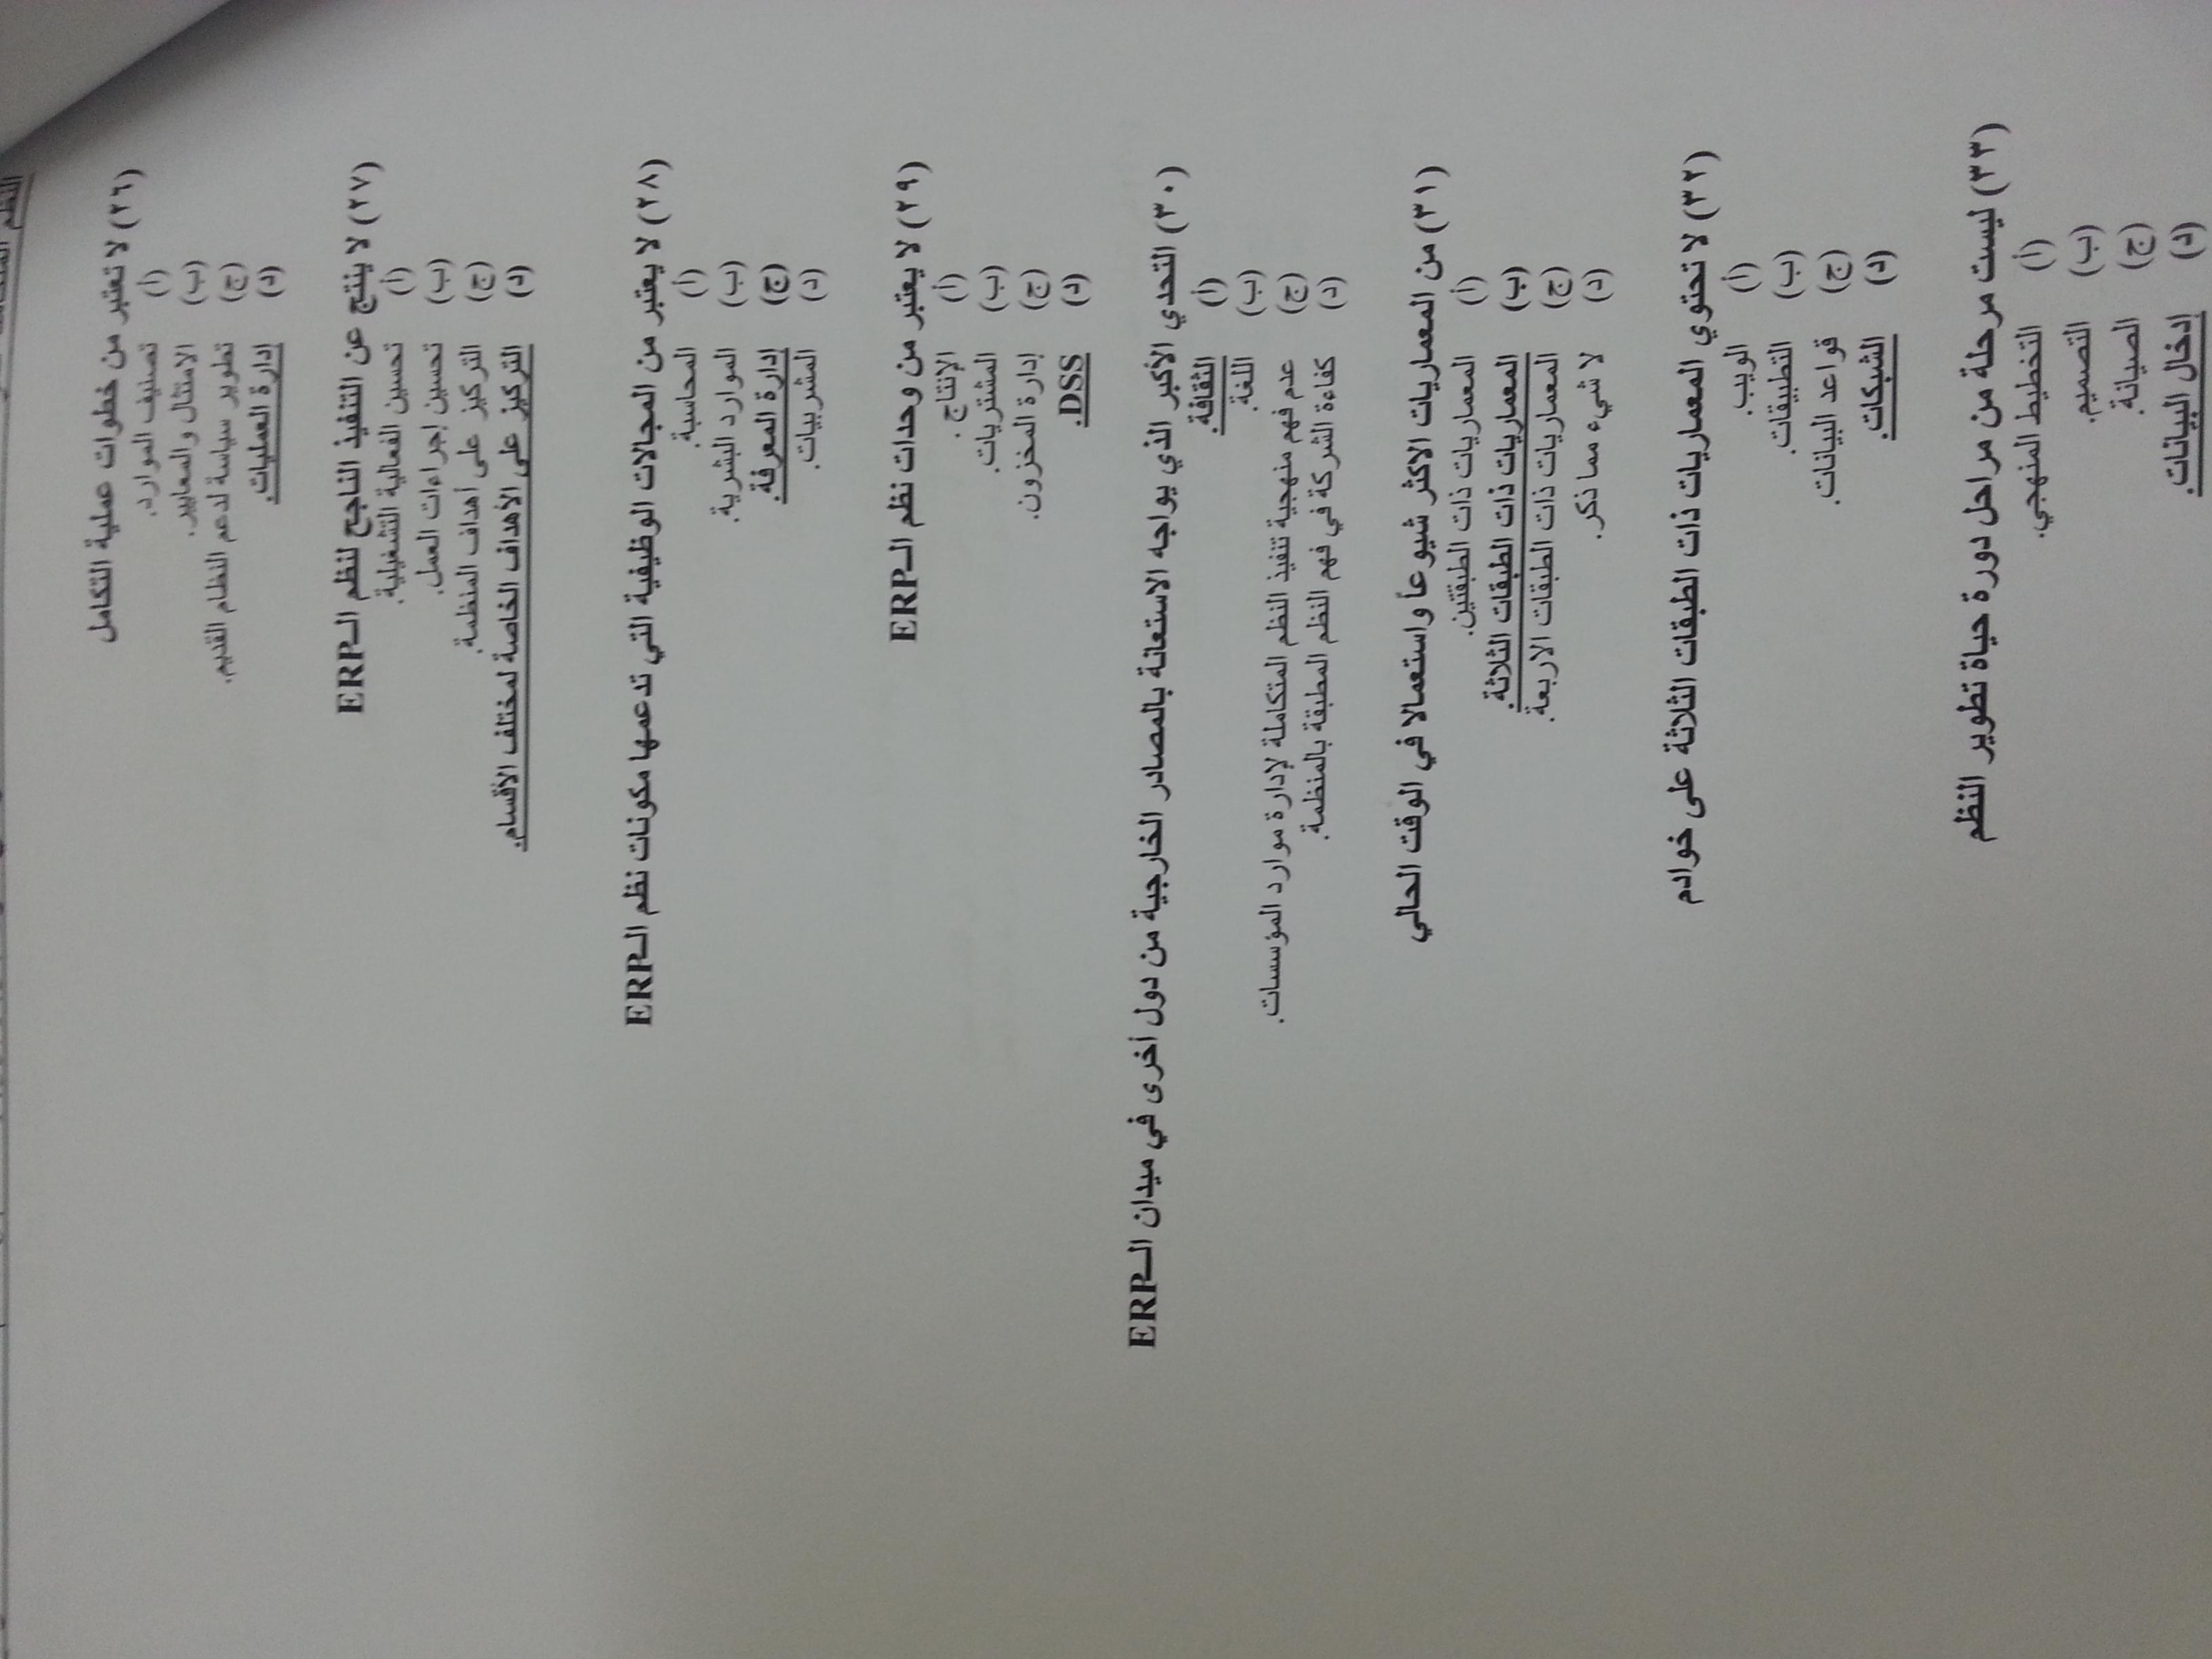 (٢٦) لا تعتبر من خطوات عملية التكامل
(أ) تصنيف الموارد.
(ب) الامتثال والمعايير.
(ج) تطوير سياسة لدعم النظام القديم.
(د) إدارة العمليات.
(٢٧) لا ينتج عن التنفيذ الناجح لنظم الـERP
(أ) تحسين الفعالية التشغيلية.
(ب) تحسين إجراءات العمل.
(ج) التركيز على أهداف المنظمة.
(د) التركيز على الأهداف الخاصة لمختلف الأقسام.
(٢٨) لا يعتبر من المجالات الوظيفية التي تدعمها مكونات نظم الـERP
(أ) المحاسبة.
(ب) الموارد البشرية.
(ج) إدارة المعرفة.
(د) المشتريات.
(٢٩) لا يعتبر من وحدات نظم الـERP
(أ) الإنتاج.
(ب) المشتريات.
(ج) إدارة المخزون.
(د) DSS.
(٣٠) التحدي الأكبر الذي يواجه الاستعانة بالمصادر الخارجية من دول أخرى في ميدان الـERP
(أ) الثقافة.
(ب) اللغة.
(ج) عدم فهم منهجية تنفيذ النظم المتكاملة لإدارة موارد المؤسسات.
(د) كفاءة الشركة في فهم النظم المطبقة بالمنظمة.
(٣١) من المعماريات الاكثر شيوعاً واستعمالا في الوقت الحالي
(أ) المعماريات ذات الطبقتين.
(ب) المعماريات ذات الطبقات الثلاثة.
(ج) المعماريات ذات الطبقات الاربعة.
(د) لا شيء مما ذكر.
(٣٢) لا تحتوي المعماريات ذات الطبقات الثلاثة على خوادم
(أ) الويب.
(ب) التطبيقات.
(ج) قواعد البيانات.
(د) الشبكات.
(٣٣) ليست مرحلة من مراحل دورة حياة تطوير النظم
(أ) التخطيط المنهجي.
(ب) التصميم.
(ج) الصيانة.
(د) إدخال البيانات.